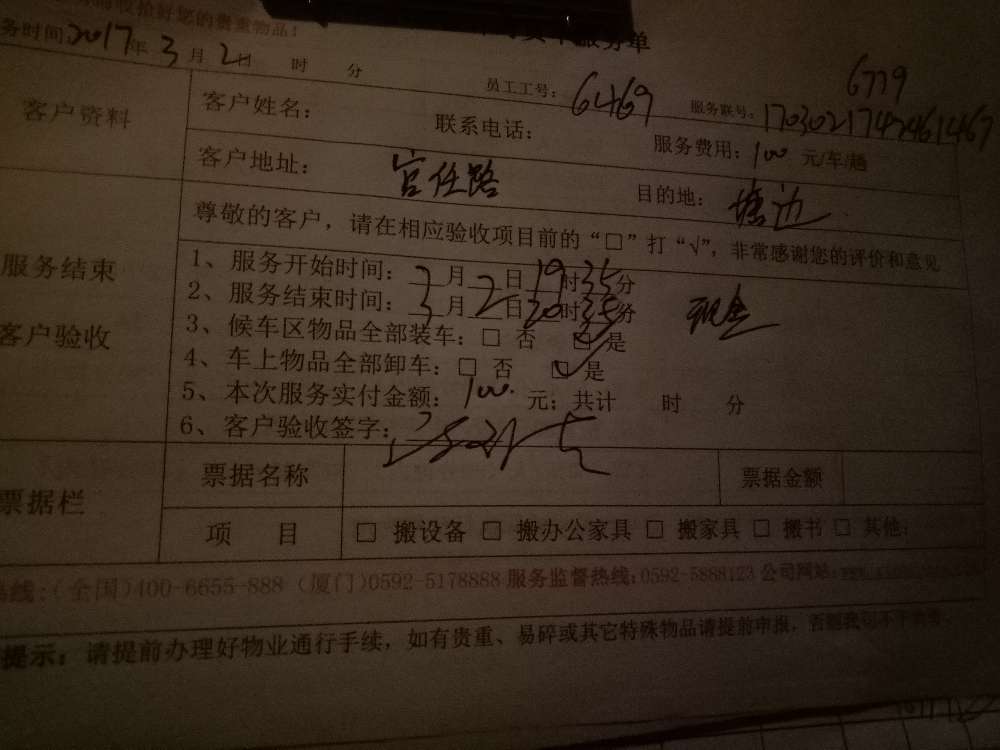 收拾好您的贵重物品！
服务单
务时间:2017年3月2日 时 分
员工工号: 6469 服务联号: 6779
客户资料 客户姓名: 联系电话: 服务费用: 100 元/车/趟
客户地址: 官任路 目的地: 塘边
尊敬的客户，请在相应验收项目前的“□”打“√”，非常感谢您的评价和意见
服务结束
客户验收
1、服务开始时间: 3月2日19时35分
2、服务结束时间: 3月2日20时35分 现金
3、候车区物品全部装车: □ 否 ☑ 是
4、车上物品全部卸车: □ 否 ☑ 是
5、本次服务实付金额: 100 元; 共计 时 分
6、客户验收签字:
票据栏 票据名称 票据金额
项 目 □ 搬设备 □ 搬办公家具 □ 搬家具 □ 搬书 □ 其他:
热线:(全国)400-6655-888 (厦门)0592-5178888 服务监督热线:0592-5888123 公司网站:
提示: 请提前办理好物业通行手续，如有贵重、易碎或其它特殊物品请提前申报，否则我司不